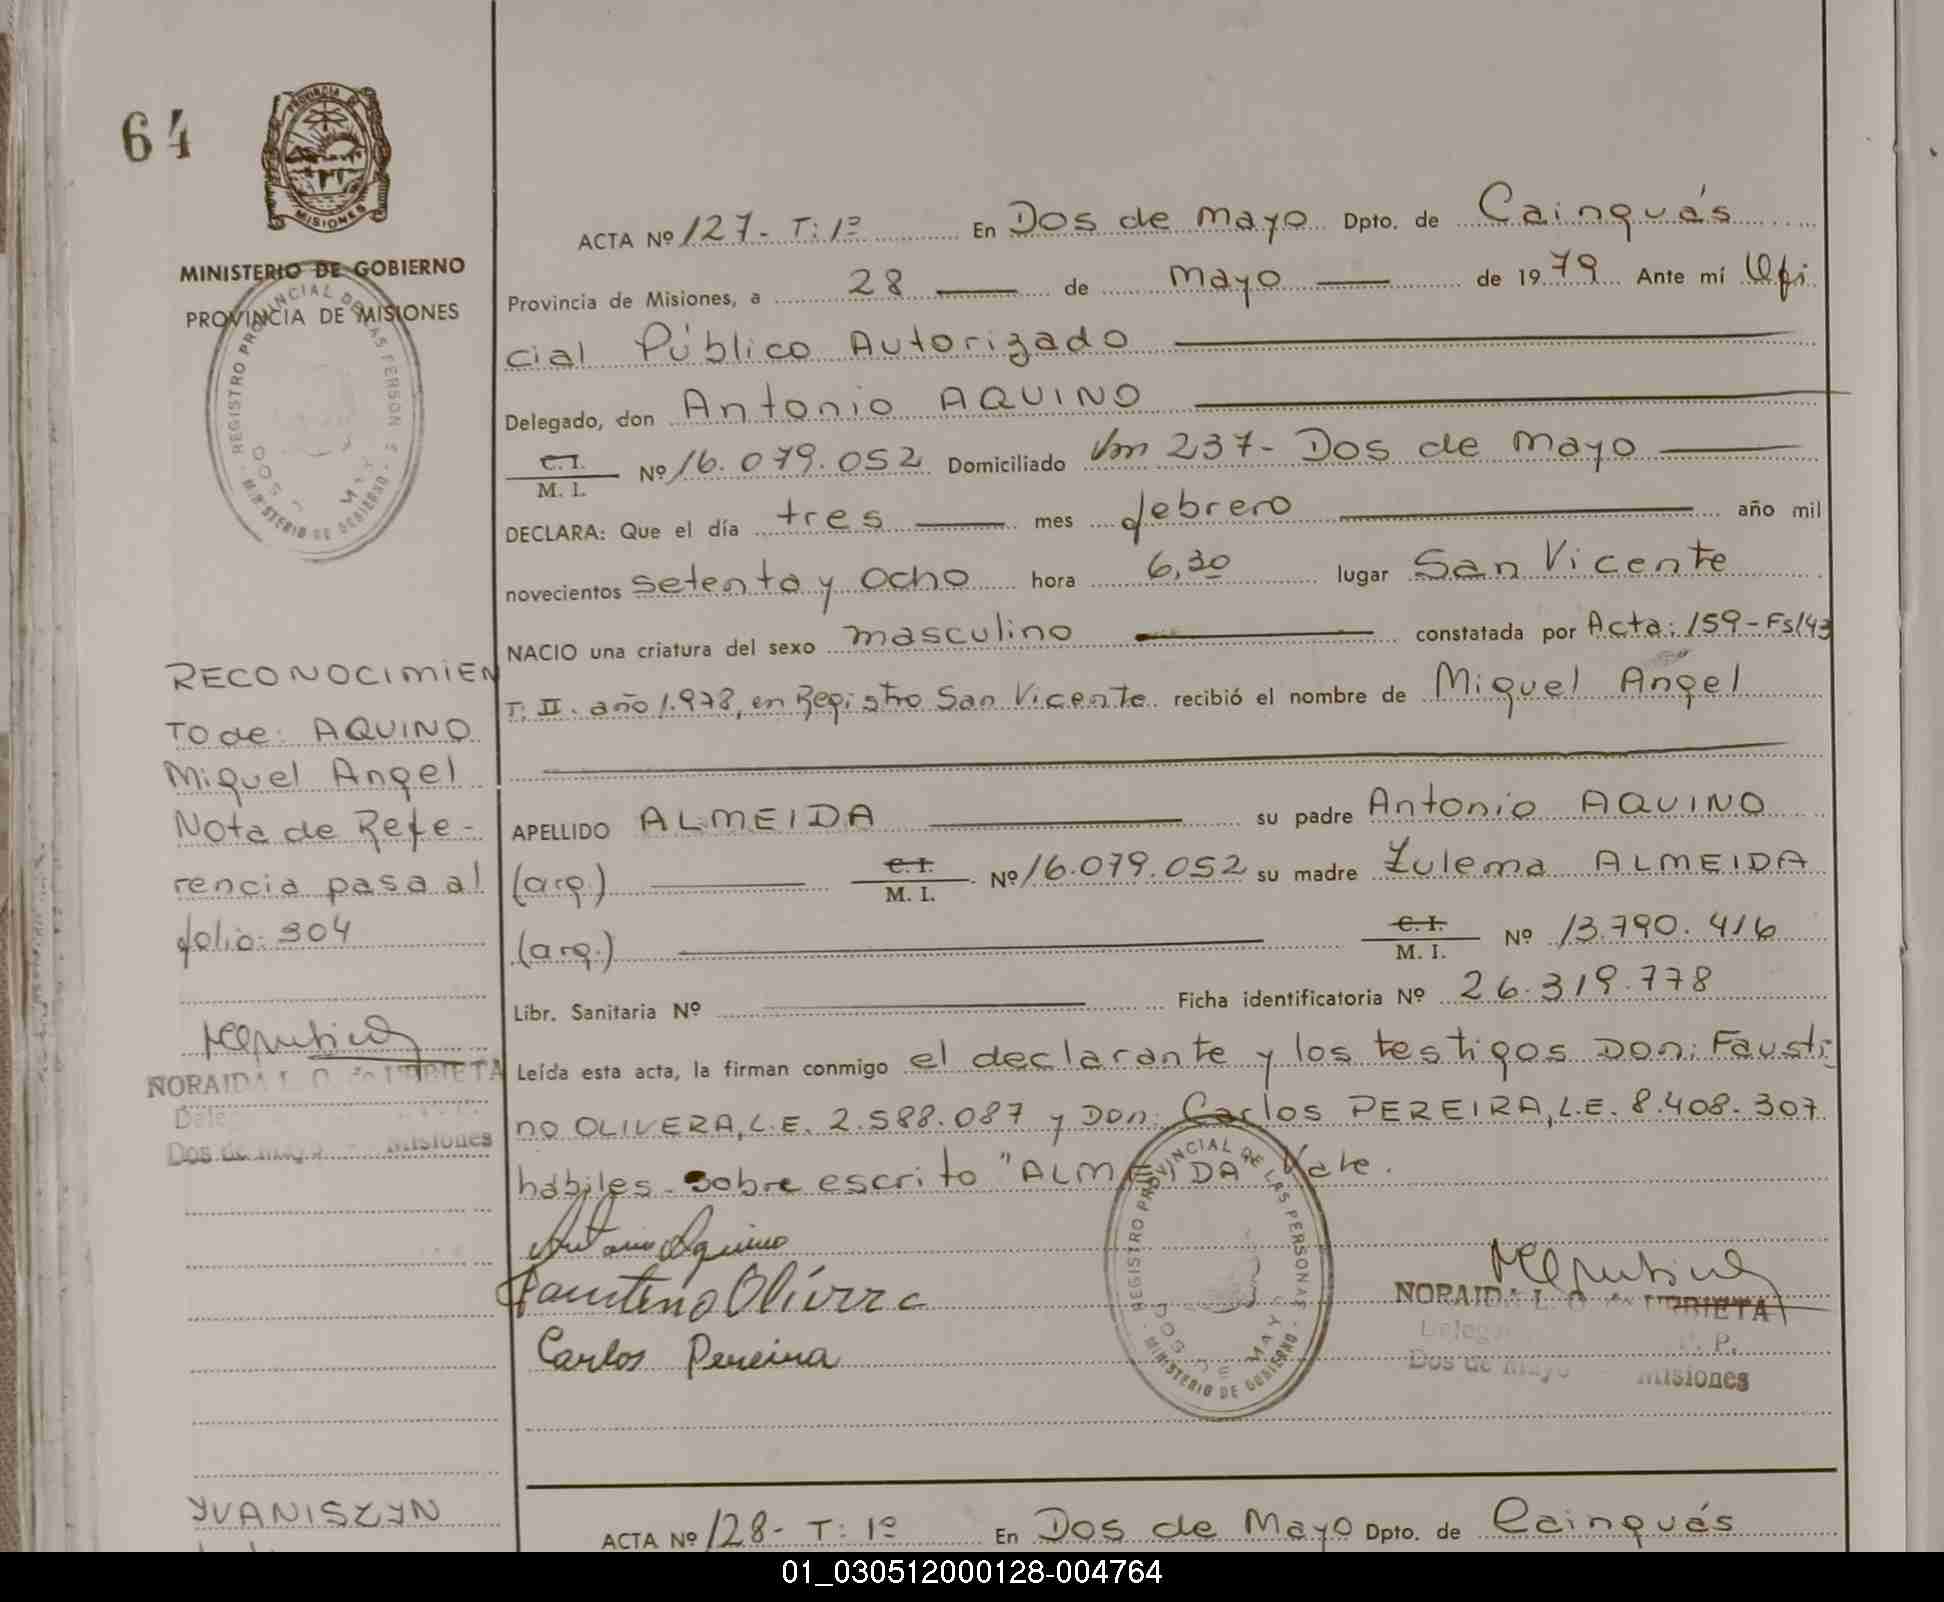 64
PROVINCIA DE
MISIONES
MINISTERIO DE GOBIERNO
PROVINCIA DE MISIONES
REGISTRO PROVINCIAL DE LAS PERSONAS
MINISTERIO DE GOBIERNO
RECONOCIMIEN
TO de: AQUINO
Miguel Angel
Nota de Refe-
rencia pasa al
folio: 304
NORAIDA L.
Dos de Mayo Misiones
YVANISZYN
ACTA Nº 127- T: 1º En Dos de Mayo Dpto. de Cainguás
Provincia de Misiones, a 28 de Mayo de 1979 Ante mí Ofi
cial Público Autorizado
Delegado, don Antonio AQUINO
C.I.
M. I. Nº 16.079.052 Domiciliado Km 237- Dos de Mayo
DECLARA: Que el día tres mes febrero año mil
novecientos setenta y ocho hora 6,30 lugar San Vicente
NACIO una criatura del sexo masculino constatada por Acta: 159-Fs/43
T. II. año 1.978, en Registro San Vicente recibió el nombre de Miguel Angel
APELLIDO ALMEIDA su padre Antonio AQUINO
(arg.) C.I.
M. I. Nº 16.079.052 su madre Zulema ALMEIDA
(arg.) C.I.
M. I. Nº 13.790.416
Libr. Sanitaria Nº Ficha identificatoria Nº 26.319.778
Leída esta acta, la firman conmigo el declarante y los testigos Don: Fausti
no OLIVERA, L.E. 2.588.087 y Don: Carlos PEREIRA, L.E. 8.408.307
hábiles- Sobre escrito "ALMEIDA" Vale.
Antonio Aquino
Faustino Olivera
Carlos Pereira
REGISTRO PROVINCIAL DE LAS PERSONAS
DOS DE MAYO
MINISTERIO DE GOBIERNO
NORAIDA L. URRIETA
Dos de Mayo Misiones
ACTA Nº 128- T: 1º En Dos de Mayo Dpto. de Cainguás
01_030512000128-004764